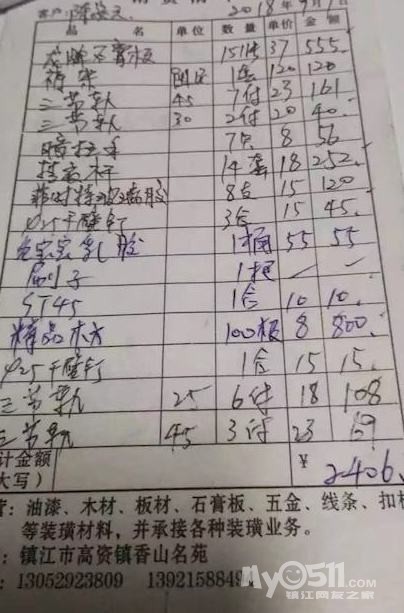 客户: 2018年9月1日
品 名 单位 数量 单价 金额
龙牌石膏板 15张 37 555.
裤架 1套 120 120
三节轨 45 7付 23 161
三节轨 30 2付 20 40.
暗拉手 7只 8 56
挂衣杆 14套 18 252.
8支 15 120
φ25干壁钉 3合 15 45.
乳胶 1桶 55 55
刷子 1把 — —
ST45 1合 10 10.
精品木方 100根 8 800.
φ25干壁钉 1合 15 15.
三节轨 25 6付 18 108
三节轨 45 3付 23 69
计金额
大写) ¥ 2406.
营:油漆、木材、板材、石膏板、五金、线条、扣板
等装璜材料,并承接各种装璜业务。
:镇江市高资镇香山名苑
:13052923809 1392158849
my0511.com
镇江网友之家